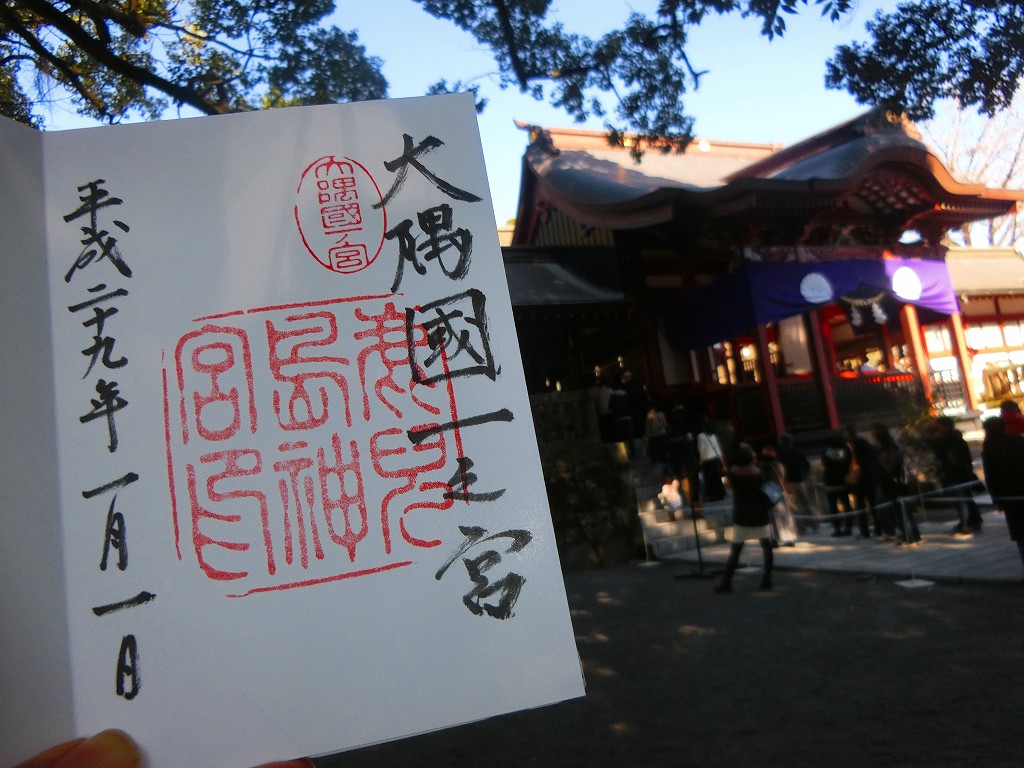 大隅國一之宮
大隅國一宮
鹿兒
島神
宮印
平成二十九年一月一日